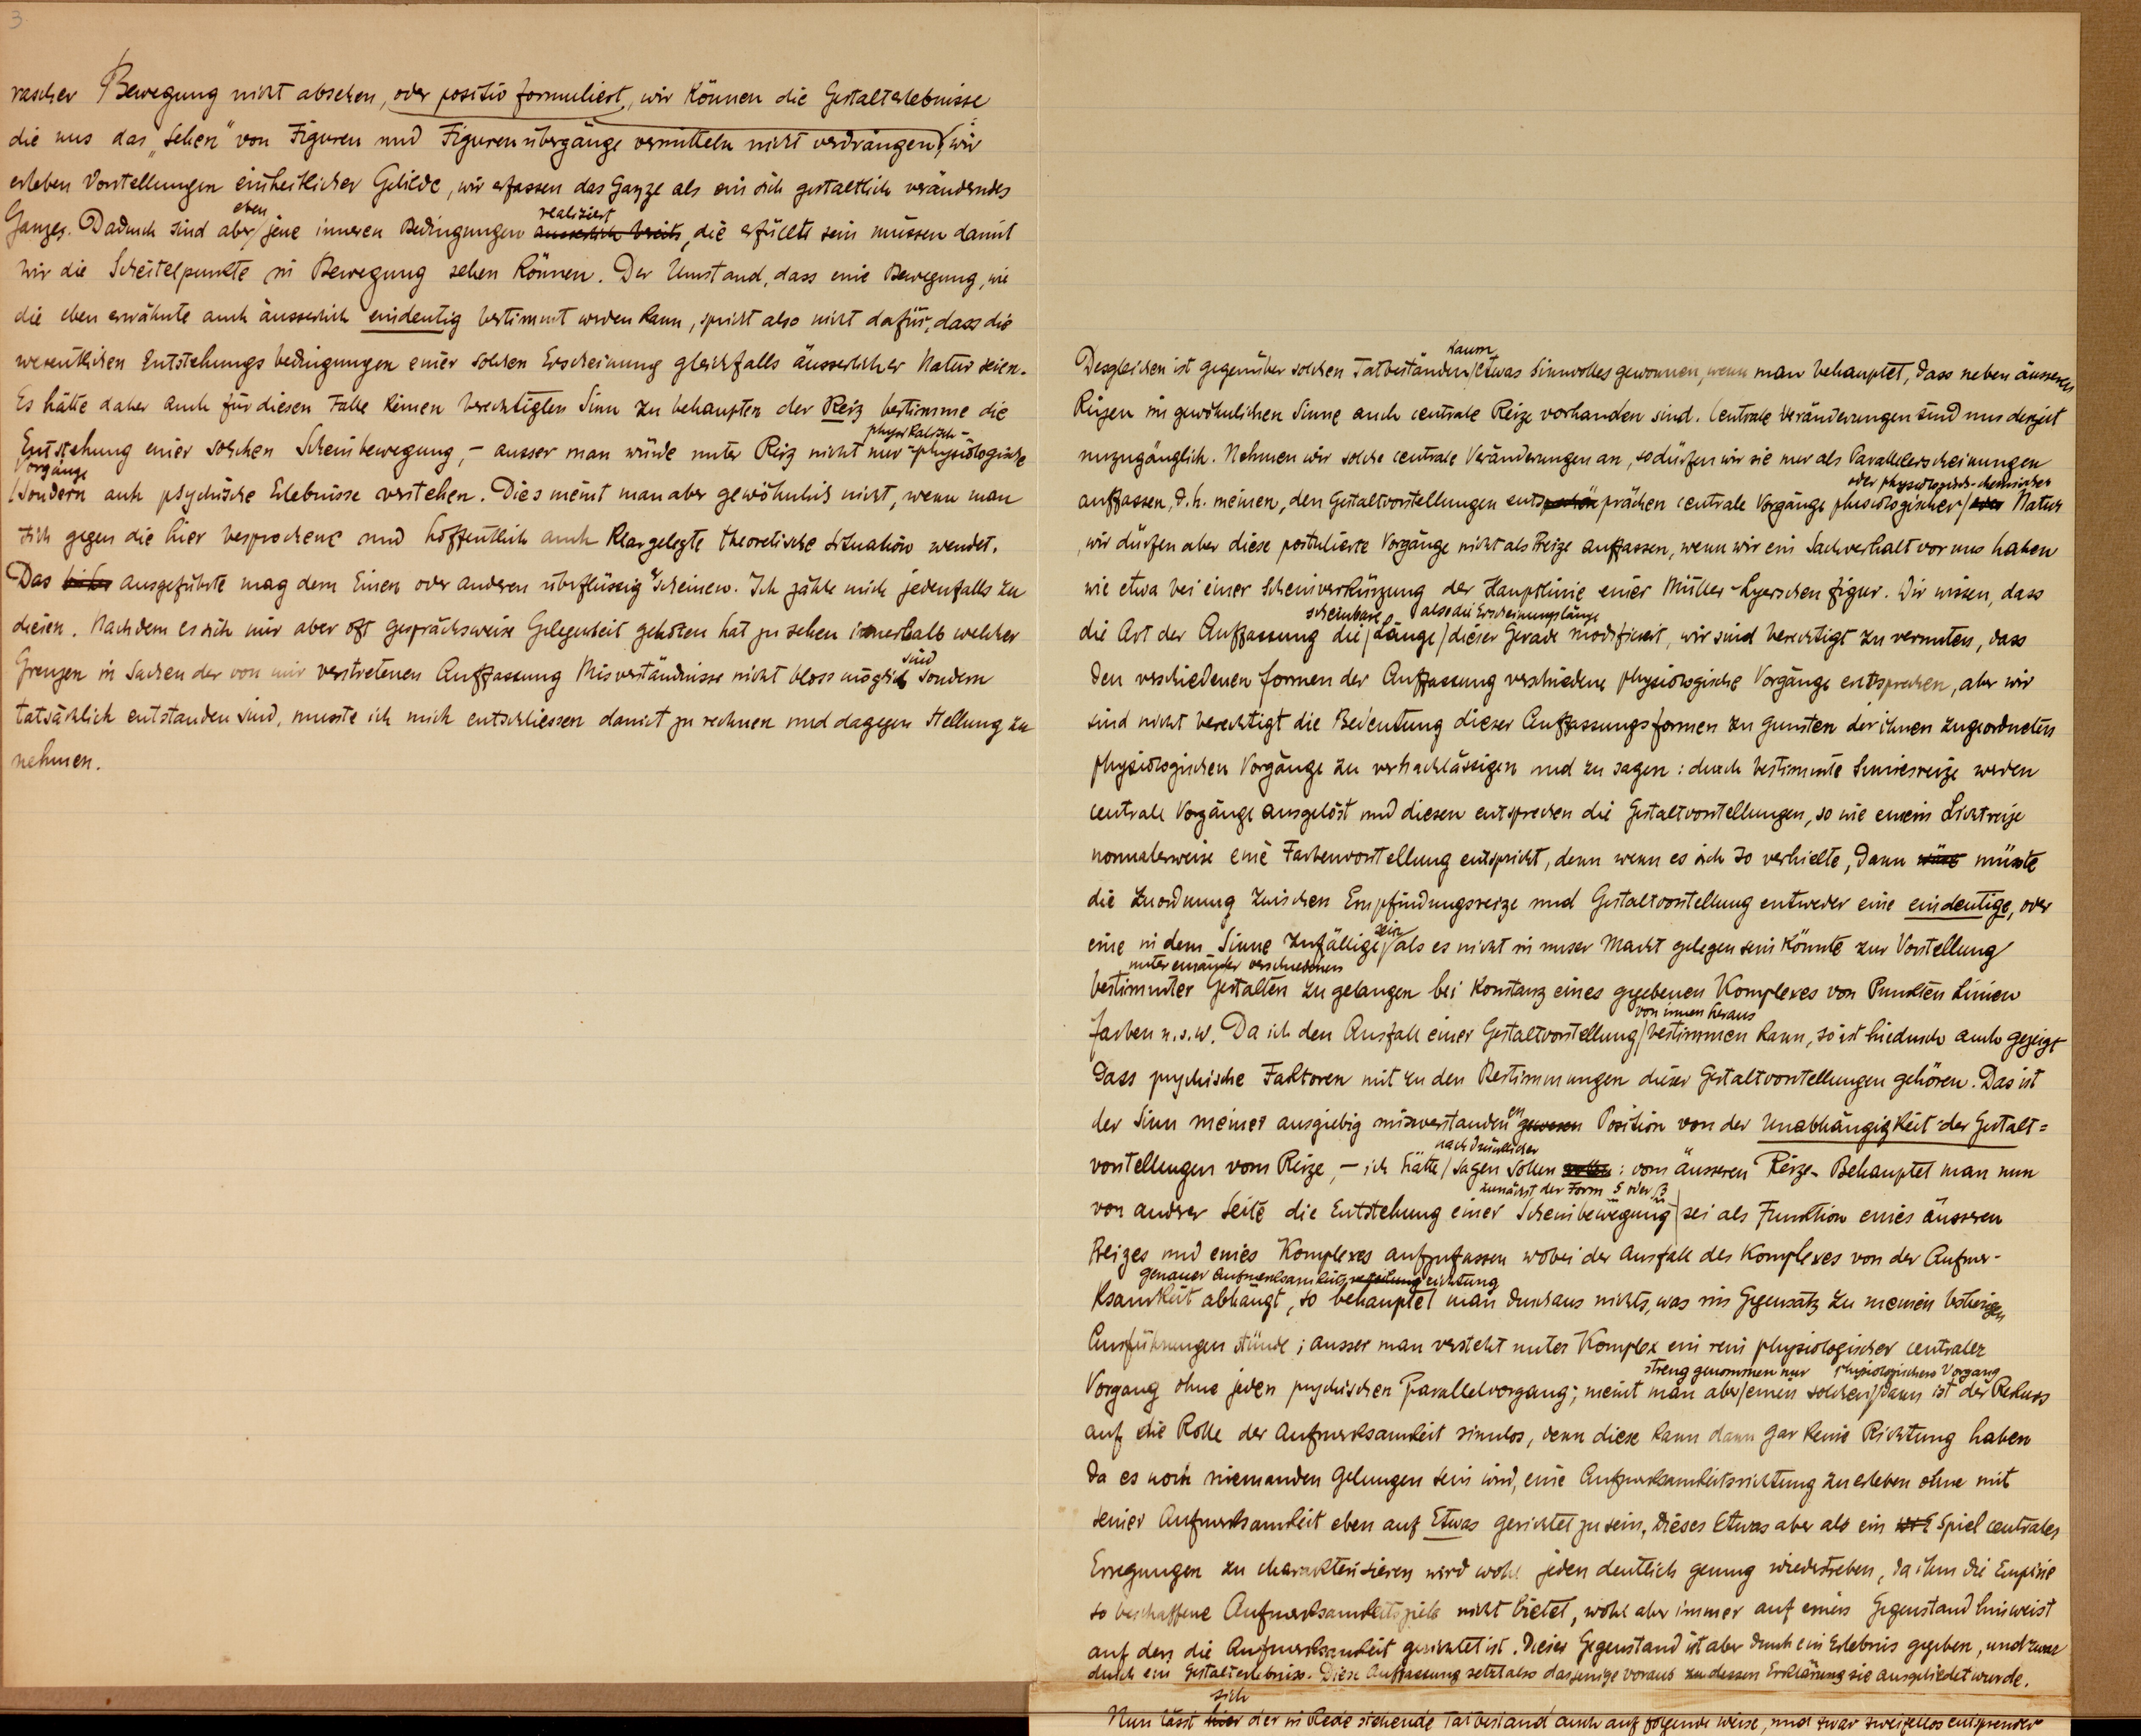 3
rascher Bewegung nicht absehen, oder positiv formuliert, wir können die Gestalterlebnisse
die uns das „Sehen" von Figuren und Figurenübergänge vermitteln nicht verdrängen, wir
erleben Vorstellungen einheitlicher Gebilde, wir erfassen das Ganze als ein sich gestaltlich veränderndes
eben realisiert
Ganzes. Dadurch sind aber jene inneren Bedingungen ausserlich bereits, die erfüllt sein müssen damit
wir die Scheitelpunkte in Bewegung sehen können. Der Umstand, dass eine Bewegung, wie
die eben erwähnte auch äusserlich eindeutig bestimmt werden kann, spricht also nicht dafür, dass die
wesentlichen Entstehungsbedingungen einer solchen Erscheinung gleichfalls äusserlicher Natur seien.
Es hätte daher auch für diesen Falle keinen berechtigten Sinn zu behaupten der Reiz bestimme die
physikalisch-
Entstehung einer solchen Scheinbewegung, – ausser man würde unter Reiz nicht nur physiologische
Vorgänge
sondern auch psychische Erlebnisse verstehen. Dies meint man aber gewöhnlich nicht, wenn man
sich gegen die hier besprochene und hoffentlich auch klargelegte theoretische Situation wendet.
Das bisher ausgeführte mag dem Einen oder anderen überflüssig erscheinen. Ich zähle mich jedenfalls zu
diesen. Nachdem es sich mir aber oft gesprächsweise Gelegenheit geboten hat zu sehen innerhalb welcher
sind
Grenzen in Sachen der von mir verstretenen Auffassung Misverständnisse nicht bloss möglich sondern
tatsächlich entstanden sind, musste ich mich entschliessen damit zu rechnen und dagegen Stellung zu
nehmen.
kaum
Desgleichen ist gegenüber solchen Tatbeständen etwas Sinnvolles gewonnen, wenn man behauptet, dass neben äusseren
Reizen im gewöhnlichen Sinne auch centrale Reize vorhanden sind. Centrale Veränderungen sind uns derzeit
unzugänglich. Nehmen wir solche centrale Veränderungen an, so dürfen wir sie nur als Parallelerscheinungen
oder physiologisch-chemischer
auffassen, d.h. meinen, den Gestaltvorstellungen entsprächen centrale Vorgänge physiologischer oder Natur
, wir dürfen aber diese postulierte Vorgänge nicht als Reize auffassen, wenn wir ein Sachverhalt vor uns haben
wie etwa bei einer Scheinverkürzung der Hauptlinie einer Müller-Lyerschen Figur. Wir wissen, dass
scheinbare also die Erscheinungslänge
die Art der Auffassung die Länge dieser Gerade modifiziert, wir sind berechtigt zu vermuten, dass
den verschiedenen Formen der Auffassung verschiedene physiologische Vorgänge entsprechen, aber wir
sind nicht berechtigt die Bedeutung dieser Auffassungsformen zu gunsten der ihnen zugeordneten
physiologischen Vorgänge zu vernachlässigen und zu sagen: durch bestimmte Sinnesreize werden
centrale Vorgänge ausgelöst und diesen entsprechen die Gestaltvorstellungen, so wie einem Lichtreize
normalerweise eine Farbenvorstellung entspricht, denn wenn es sich so verhielte, dann wäre müsste
die Zuordnung zwischen Empfindungsreize und Gestaltvorstellung entweder eine eindeutige, oder
sein
eine in dem Sinne zufällige als es nicht in unser Macht gelegen sein könnte zur Vorstellung
untereinander verschiedenen
bestimmter Gestalten zu gelangen bei Konstanz eines gegebenen Komplexes von Punkten Linien
von innen heraus
Farben u.s.w. Da ich den Ausfall einer Gestaltvorstellung bestimmen kann, so ist hiedurch auch gezeigt
dass psychische Faktoren mit zu den Bestimmungen dieser Gestaltvorstellungen gehören. Das ist
en
der Sinn meiner ausgiebig misverstanden gewesen Position von der Unabhängigkeit der Gestalt=
nachdrücklicher
vorstellungen vom Reize, – ich hätte sagen sollen : vom äusseren Reize. Behauptet man nun
zunächst der Form S oder β
von andrer Seite die Entstehung einer Scheinbewegung sei als Funktion eines äusseren
Reizes und eines Komplexes aufzufassen wobei der Ausfall des Komplexes von der Aufmer-
genauer Aufmerksamkeitsverteilung richtung
ksamkeit abhängt, so behauptet man durchaus nichts, was im Gegensatz zu meinen bisherigen
Ausführungen stünde; ausser man versteht unter Komplex ein rein physiologischer centraler
streng genommen nur physiologischen Vorgang
Vorgang ohne jeden psychischen Parallelvorgang; meint man aber einen solchen, dann ist der Rekurs
auf die Rolle der Aufmerksamkeit sinnlos, denn diese kann dann gar keine Richtung haben
da es noch niemanden gelungen sein wird, eine Aufmerksamkeitsrichtung zu erleben ohne mit
seiner Aufmerksamkeit eben auf Etwas gerichtet zu sein. Dieses Etwas aber als ein Spiel centraler
Erregungen zu charakterisieren wird wohl jeden deutlich genug wiederstreben, da ihm die Empirie
so beschaffene Aufmerksamkeitsziele nicht bietet, wohl aber immer auf einen Gegenstand hinweist
auf den die Aufmerksamkeit gerichtet ist. Dieser Gegenstand ist aber durch ein Erlebnis gegeben, und zwar
durch ein Gestalterlebniss. Diese Auffassung setzt also dasjenige voraus zu dessen Erklärung sie ausgebildet wurde.
sich
Nun lässt hier der in Rede stehende Tatbestand auch auf folgende Weise, und zwar zweifellos entsprender